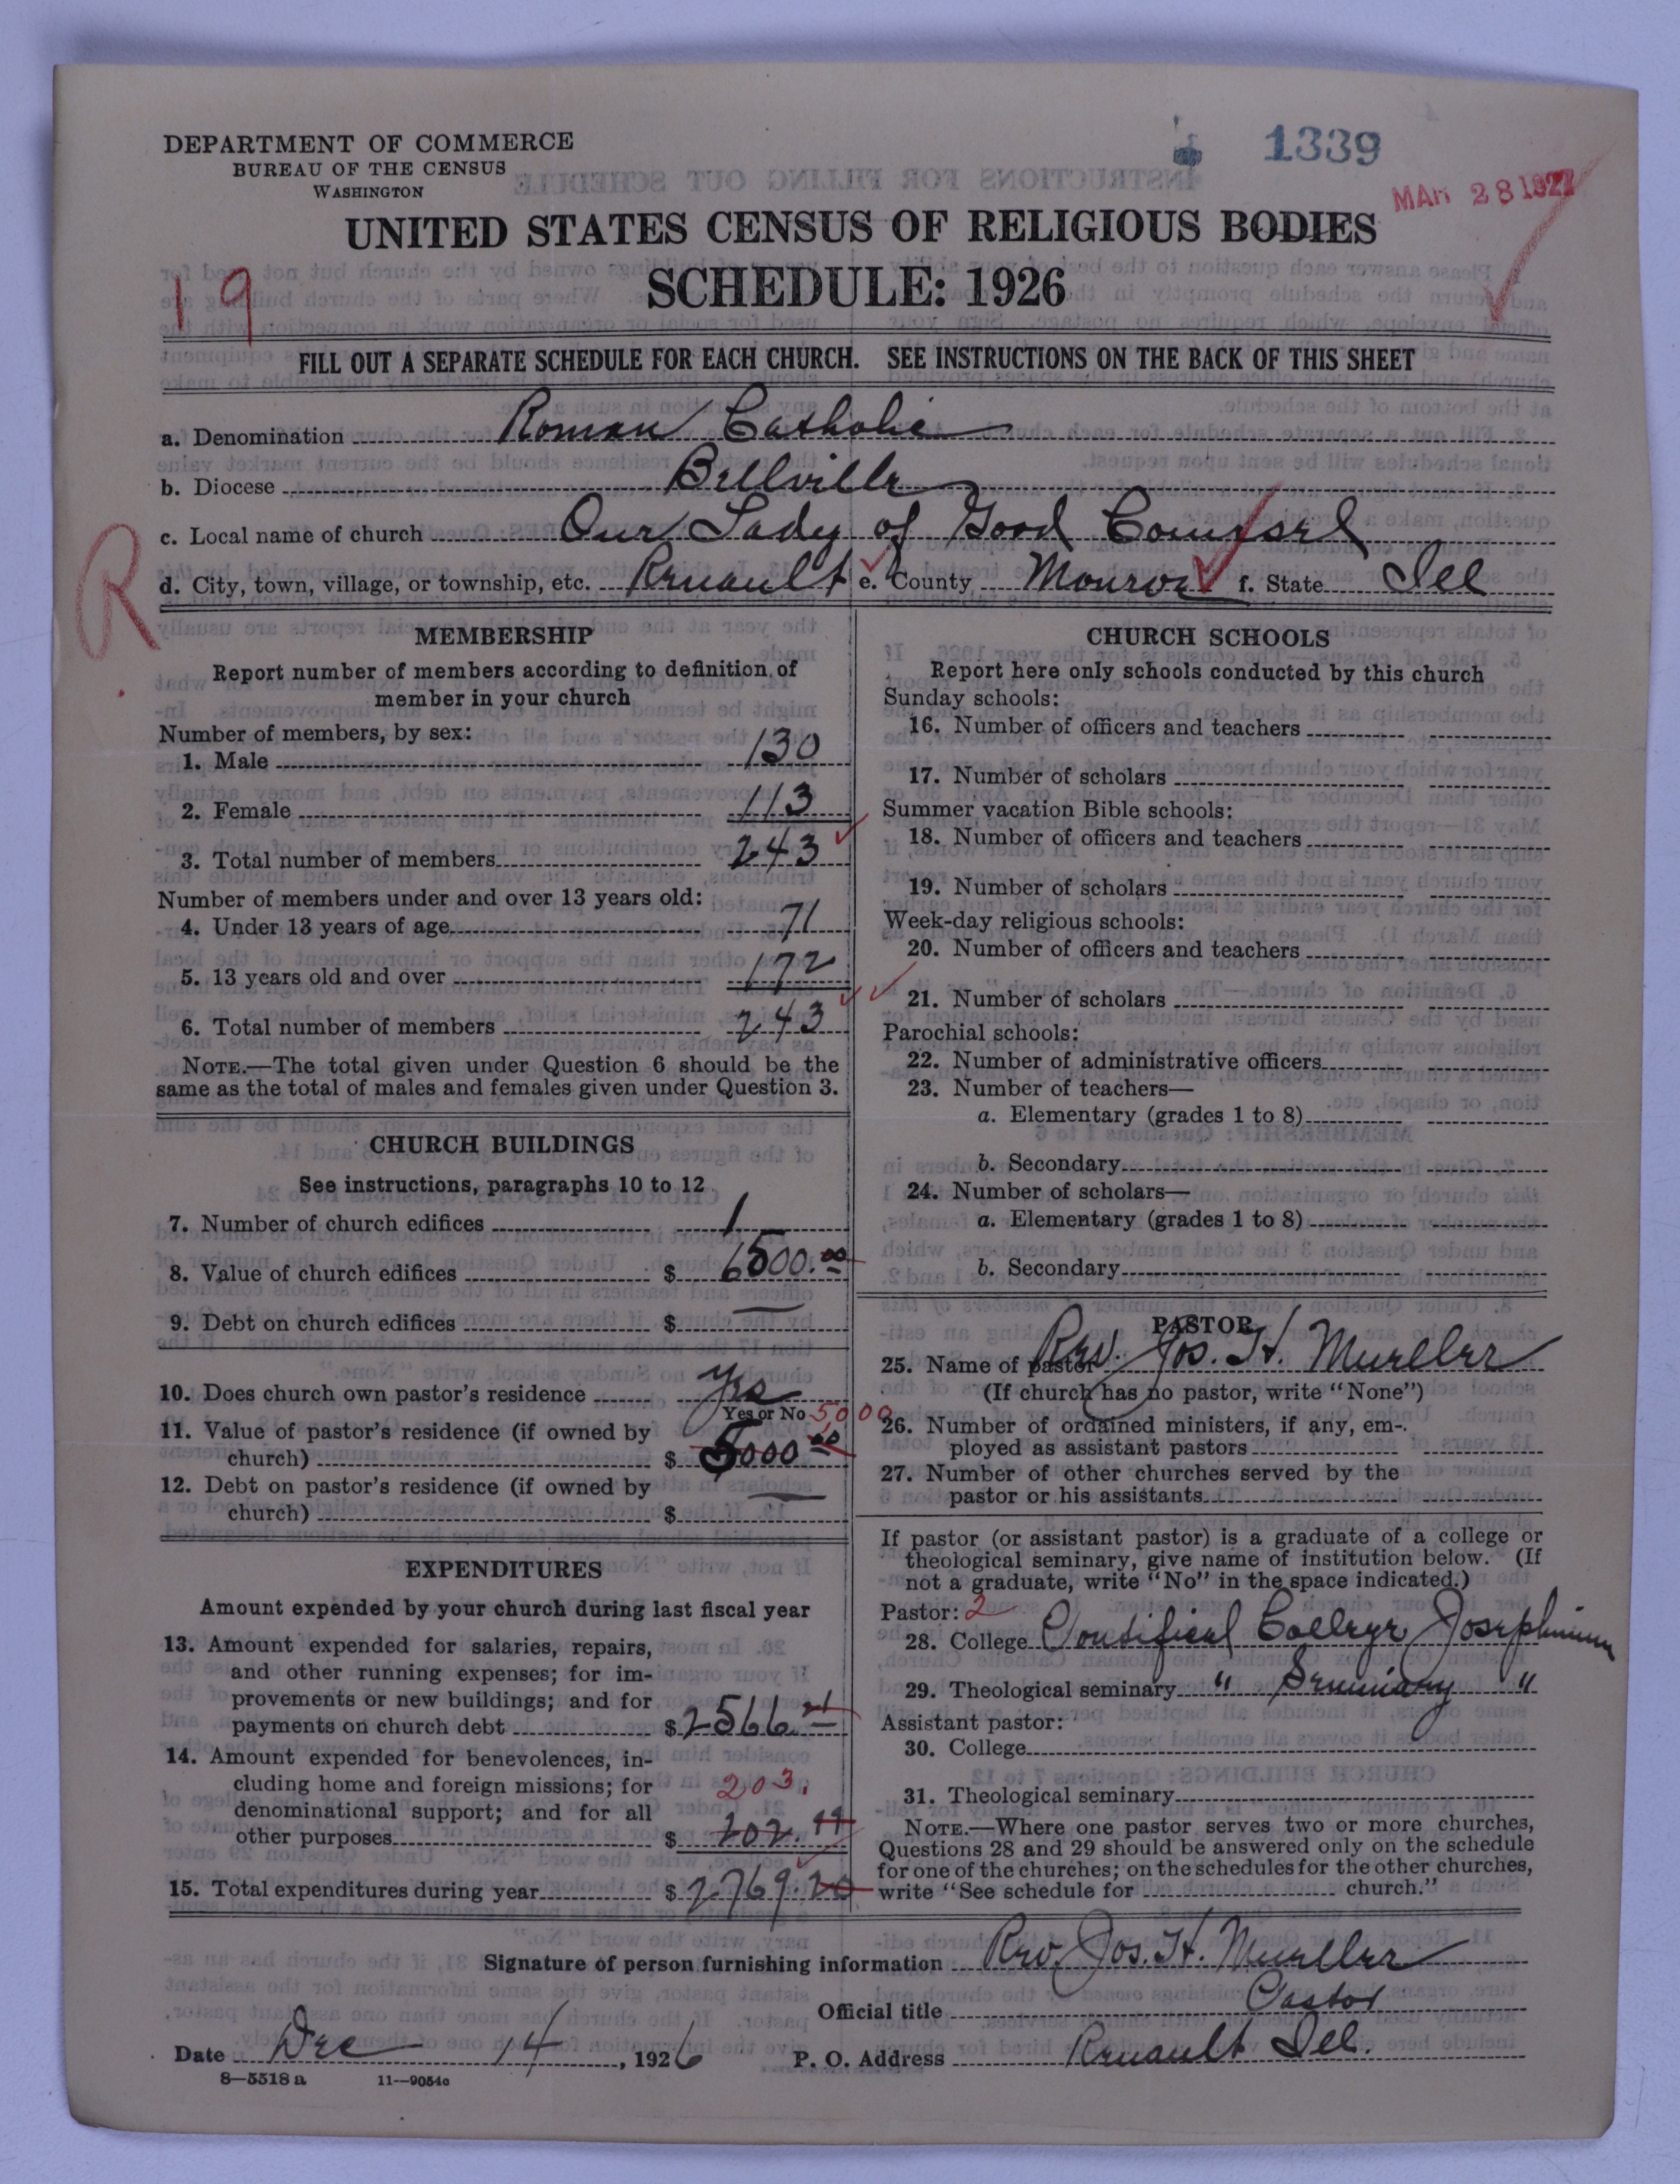 1339
MAR 28 1927
DEPARTMENT OF COMMERCE
BUREAU OF THE CENSUS
WASHINGTON
UNITED STATES CENSUS OF RELIGIOUS BODIES
SCHEDULE: 1926
19
FILL OUT A SEPARATE SCHEDULE FOR EACH CHURCH. SEE INSTRUCTIONS ON THE BACK OF THIS SHEET
a. Denomination Roman Catholic
b. Diocese Bellville
c. Local name of church Our Lady of Good Counsel
R
d. City, town, village, or township, etc. Renault e. County Monroe f. State Ill
MEMBERSHIP
Report number of members according to definition of
member in your church
Number of members, by sex:
1. Male 130
2. Female 113
3. Total number of members 243
Number of members under and over 13 years old:
4. Under 13 years of age 71
5. 13 years old and over 172
6. Total number of members 243
NOTE.—The total given under Question 6 should be the
same as the total of males and females given under Question 3.
CHURCH BUILDINGS
See instructions, paragraphs 10 to 12
7. Number of church edifices 1
8. Value of church edifices $ 6500.00
9. Debt on church edifices $ —
10. Does church own pastor's residence Yes
Yes or No 5000
11. Value of pastor's residence (if owned by
church) $ 5000 00
12. Debt on pastor's residence (if owned by
church) $ —
EXPENDITURES
Amount expended by your church during last fiscal year
13. Amount expended for salaries, repairs,
and other running expenses; for im-
provements or new buildings; and for
payments on church debt $ 2566.21
14. Amount expended for benevolences, in-
cluding home and foreign missions; for 203.
denominational support; and for all
other purposes $ 202.99
15. Total expenditures during year $ 2769.20
CHURCH SCHOOLS
Report here only schools conducted by this church
Sunday schools:
16. Number of officers and teachers
17. Number of scholars
Summer vacation Bible schools:
18. Number of officers and teachers
19. Number of scholars
Week-day religious schools:
20. Number of officers and teachers
21. Number of scholars
Parochial schools:
22. Number of administrative officers
23. Number of teachers—
a. Elementary (grades 1 to 8)
b. Secondary
24. Number of scholars—
a. Elementary (grades 1 to 8)
b. Secondary
PASTOR
25. Name of pastor Rev. Jos. H. Mueller
(If church has no pastor, write "None")
26. Number of ordained ministers, if any, em-
ployed as assistant pastors
27. Number of other churches served by the
pastor or his assistants
If pastor (or assistant pastor) is a graduate of a college or
theological seminary, give name of institution below. (If
not a graduate, write "No" in the space indicated.)
Pastor: 2
28. College Pontifical College Josephinum
29. Theological seminary " Seminary "
Assistant pastor:
30. College
31. Theological seminary
NOTE.—Where one pastor serves two or more churches,
Questions 28 and 29 should be answered only on the schedule
for one of the churches; on the schedules for the other churches,
write "See schedule for church."
Signature of person furnishing information Rev. Jos. H. Mueller
Official title Pastor
Date Dec 14, 1926 P. O. Address Renault Ill.
8—5518 a 11—9054c